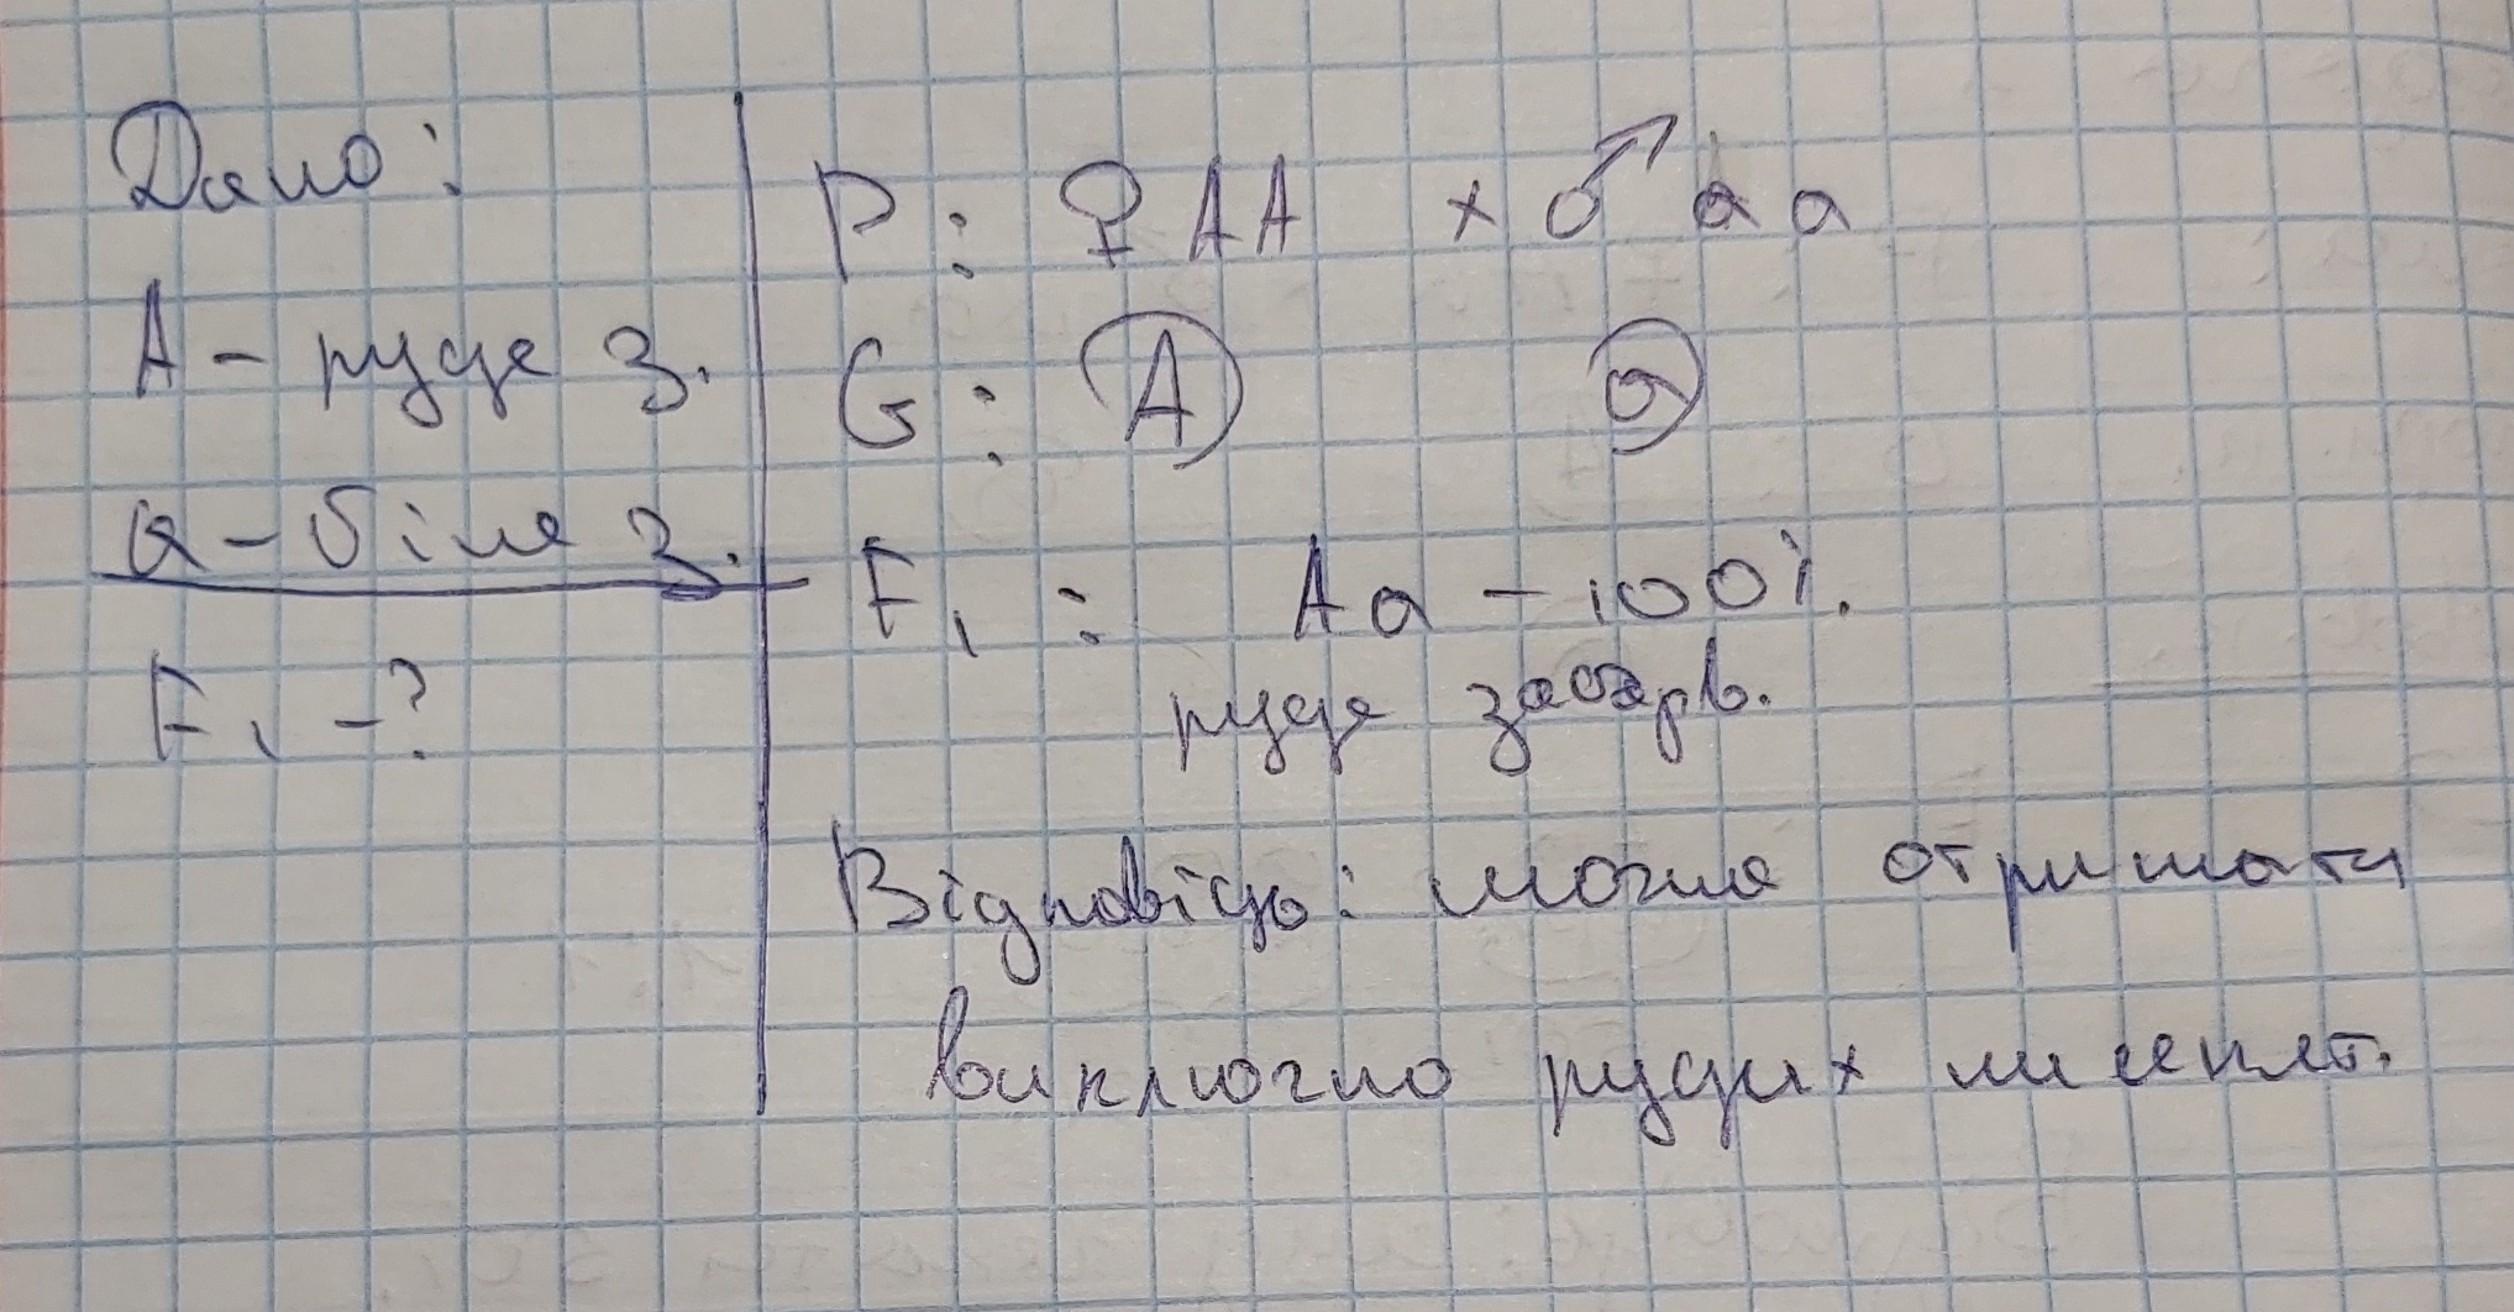 Дано:
А - руде з.
а - біле з.
F₁ - ?
P: ♀ AA × ♂ aa
G: A a
F₁: Aa - 100%.
руде забарв.
Відповідь: можна отримати
виключно рудих